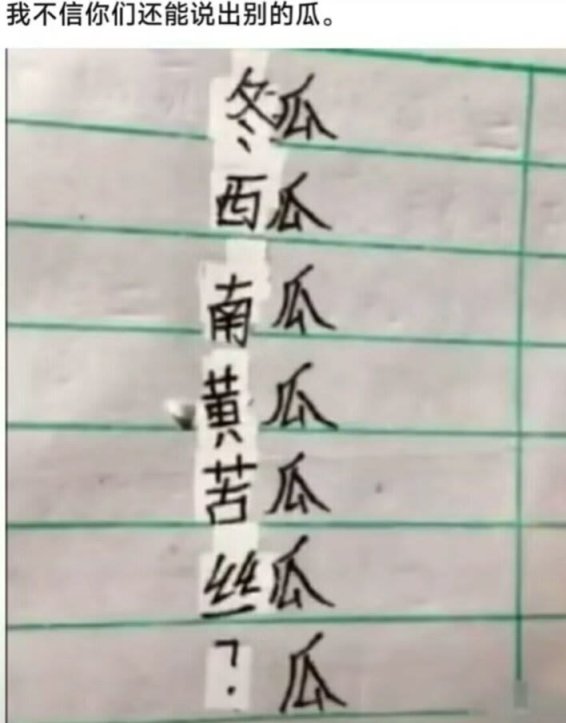 我不信你们还能说出别的瓜。
冬瓜
西瓜
南瓜
黄瓜
苦瓜
丝瓜
？瓜